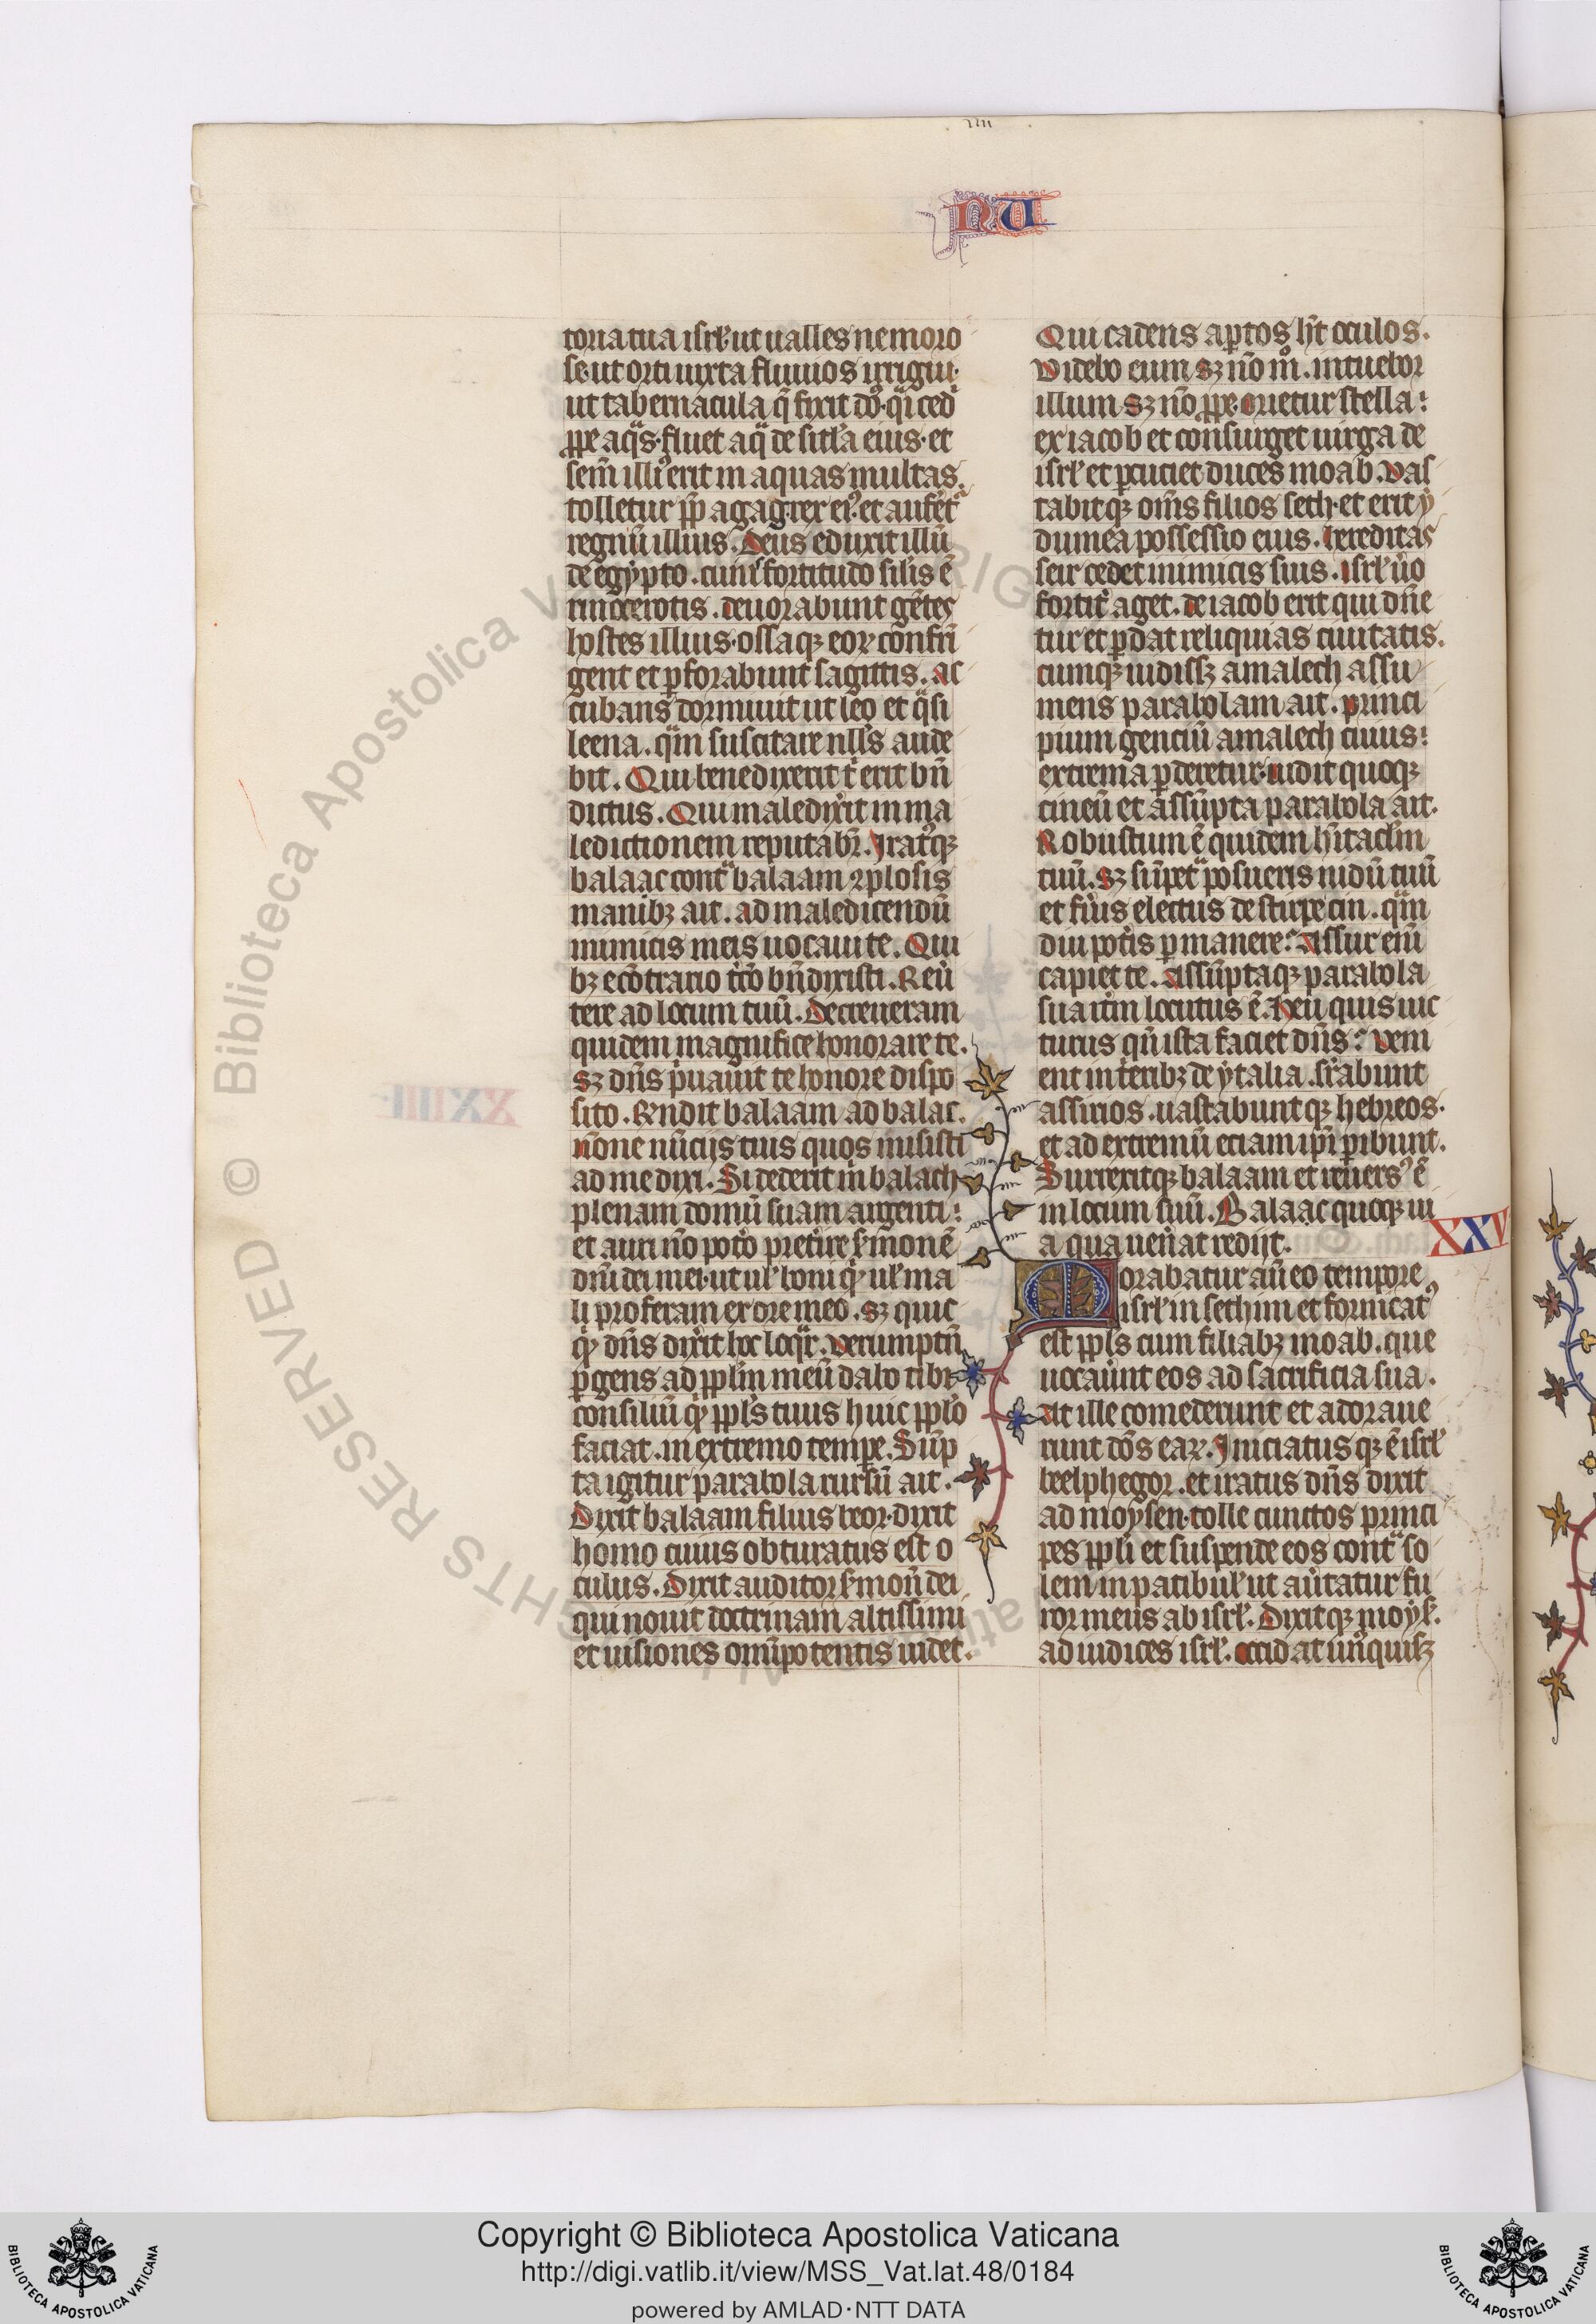 IIII
NU
toria tua isrł. ut ualles nemoro
se. ut orti iuxta fluuios irrigui.
ut tabernacula q̄ fixit dō. quͣi ced
ꝓpe aqͣs. fluet aqͣ de sitł'a eius. et
sem̄ illi' erit in aquas multas.
tolletur ꝓp̄ agag. rex ei'. et aufēt'
regnū illius. Deus eduxit illū
de egypto. cuiꝰ fortitudo siłis ē
rinocerotis. deuorabunt gētes
hostes illius. ossaqꝫ eoꝝ confri
gent et ꝑforabunt sagittis. ac
cubans dormiuit ut leo et qͣsi
leena. qͣm suscitare nłłs aude
bit. Qui benedixerit t' erit bn̄
dictus. Qui maledix'it in ma
ledictionem reputabr̄. Irat'qꝫ
balaac contͣ balaam ꝯplosis
manibꝫ ait. ad maledicendū
inimicis meis uocaui te. Qui
bꝫ ecōtrario t'cō bn̄dixisti. Reu'
tere ad locum tuū. Decreueram
quidem magnifice honorare te.
sꝫ dn̄s p'uauit te honore dispo
sito. R̄ndit balaam ad balac.
nōne nūcijs tuis quos misisti
ad me dixi. Si dederit m̄ balach
plenam domū suam argenti:
et auri nō pot'o pret'ire s'monē
dn̄i dei mei. ut uł boni qͥ uł ma
li proferam ex ore meo. sꝫ quic
qͥ dn̄s dix'it hoc loqͣr. Verumptn̄
ꝑgens ad ppłm meū dabo tibi
consiliū qͥ ppłs tuus huic ppło
faciat. in extremo tempe. Sūp
ta igitur parabola rursū ait.
Dixit balaam filius beor. dixit
homo cuius obturatus est o
culus. Dixit auditor s'monū dei
qui nouit doctrinam altissimi
et uisiones omīpotentis uidet.
Qui cadens aꝑtos hͭ oculos.
Videbo eum sꝫ nō m°. intuebor
illum sꝫ nō ꝓpe. orietur stella:
ex iacob et consurget uirga de
isrł. et ꝑcuciet duces moab. Vas
tabitqꝫ om̄s filios seth. et erit y
dumea possessio eius. hereditas
seir cedet inimicis suis. isrł. u'o
fortit' aget. de iacob erit qui dn̄e
tur et ꝑdat reliquias ciuitatis.
cumqꝫ uidissꝫ amalech assu
mens parabolam ait. princi
pium genciū amalech cuius:
extrema ꝑderetur. uidit quoqꝫ
cineū et assūpta parabola ait.
Robustum ē quidem hītacłm
tuū. sꝫ si ī petͣ posueris nidū tuū
et fu'is electus de stirpe cin. qͣm
diu pot'is ꝑmanere: Assur em̄
capiet te. assūptaqꝫ parabola
sua it'm locutus ē. Heu quis uic
turus qn̄ ista faciet dn̄s: Veni
ent in t'eribꝫ de ytalia. sꝑ'abunt
assirios. uastabuntqꝫ hebreos.
et ad extremū eciam ip̄i ꝑibunt.
Surrexitqꝫ balaam et reuers' ē
in locum suū. Balaac quoqꝫ ui
a qua uen'at redijt.
XXV
Morabatur aū eo tempore
isrł. in sethim et fornicat'
est ppłs cum filiabꝫ moab. que
uocau'unt eos ad sacrificia sua.
at ille comederunt et adoraue
runt dōs eaꝝ. Iniciatusqꝫ ē isrł
beelphegor. et iratus dn̄s dixit
ad moysen. tolle cunctos princi
pes ppłi et suspende eos contͣ so
lem in patibuł. ut au'tatur fu
ror meus ab isrł. Dixitqꝫ moys.
ad iudices isrł. occidat un'quisꝫ
XXIIII
ALL RIGHTS RESERVED © Biblioteca Apostolica Vaticana
Copyright © Biblioteca Apostolica Vaticana
http://digi.vatlib.it/view/MSS_Vat.lat.48/0184
powered by AMLAD·NTT DATA
BIBLIOTECA APOSTOLICA VATICANA
BIBLIOTECA APOSTOLICA VATICANA